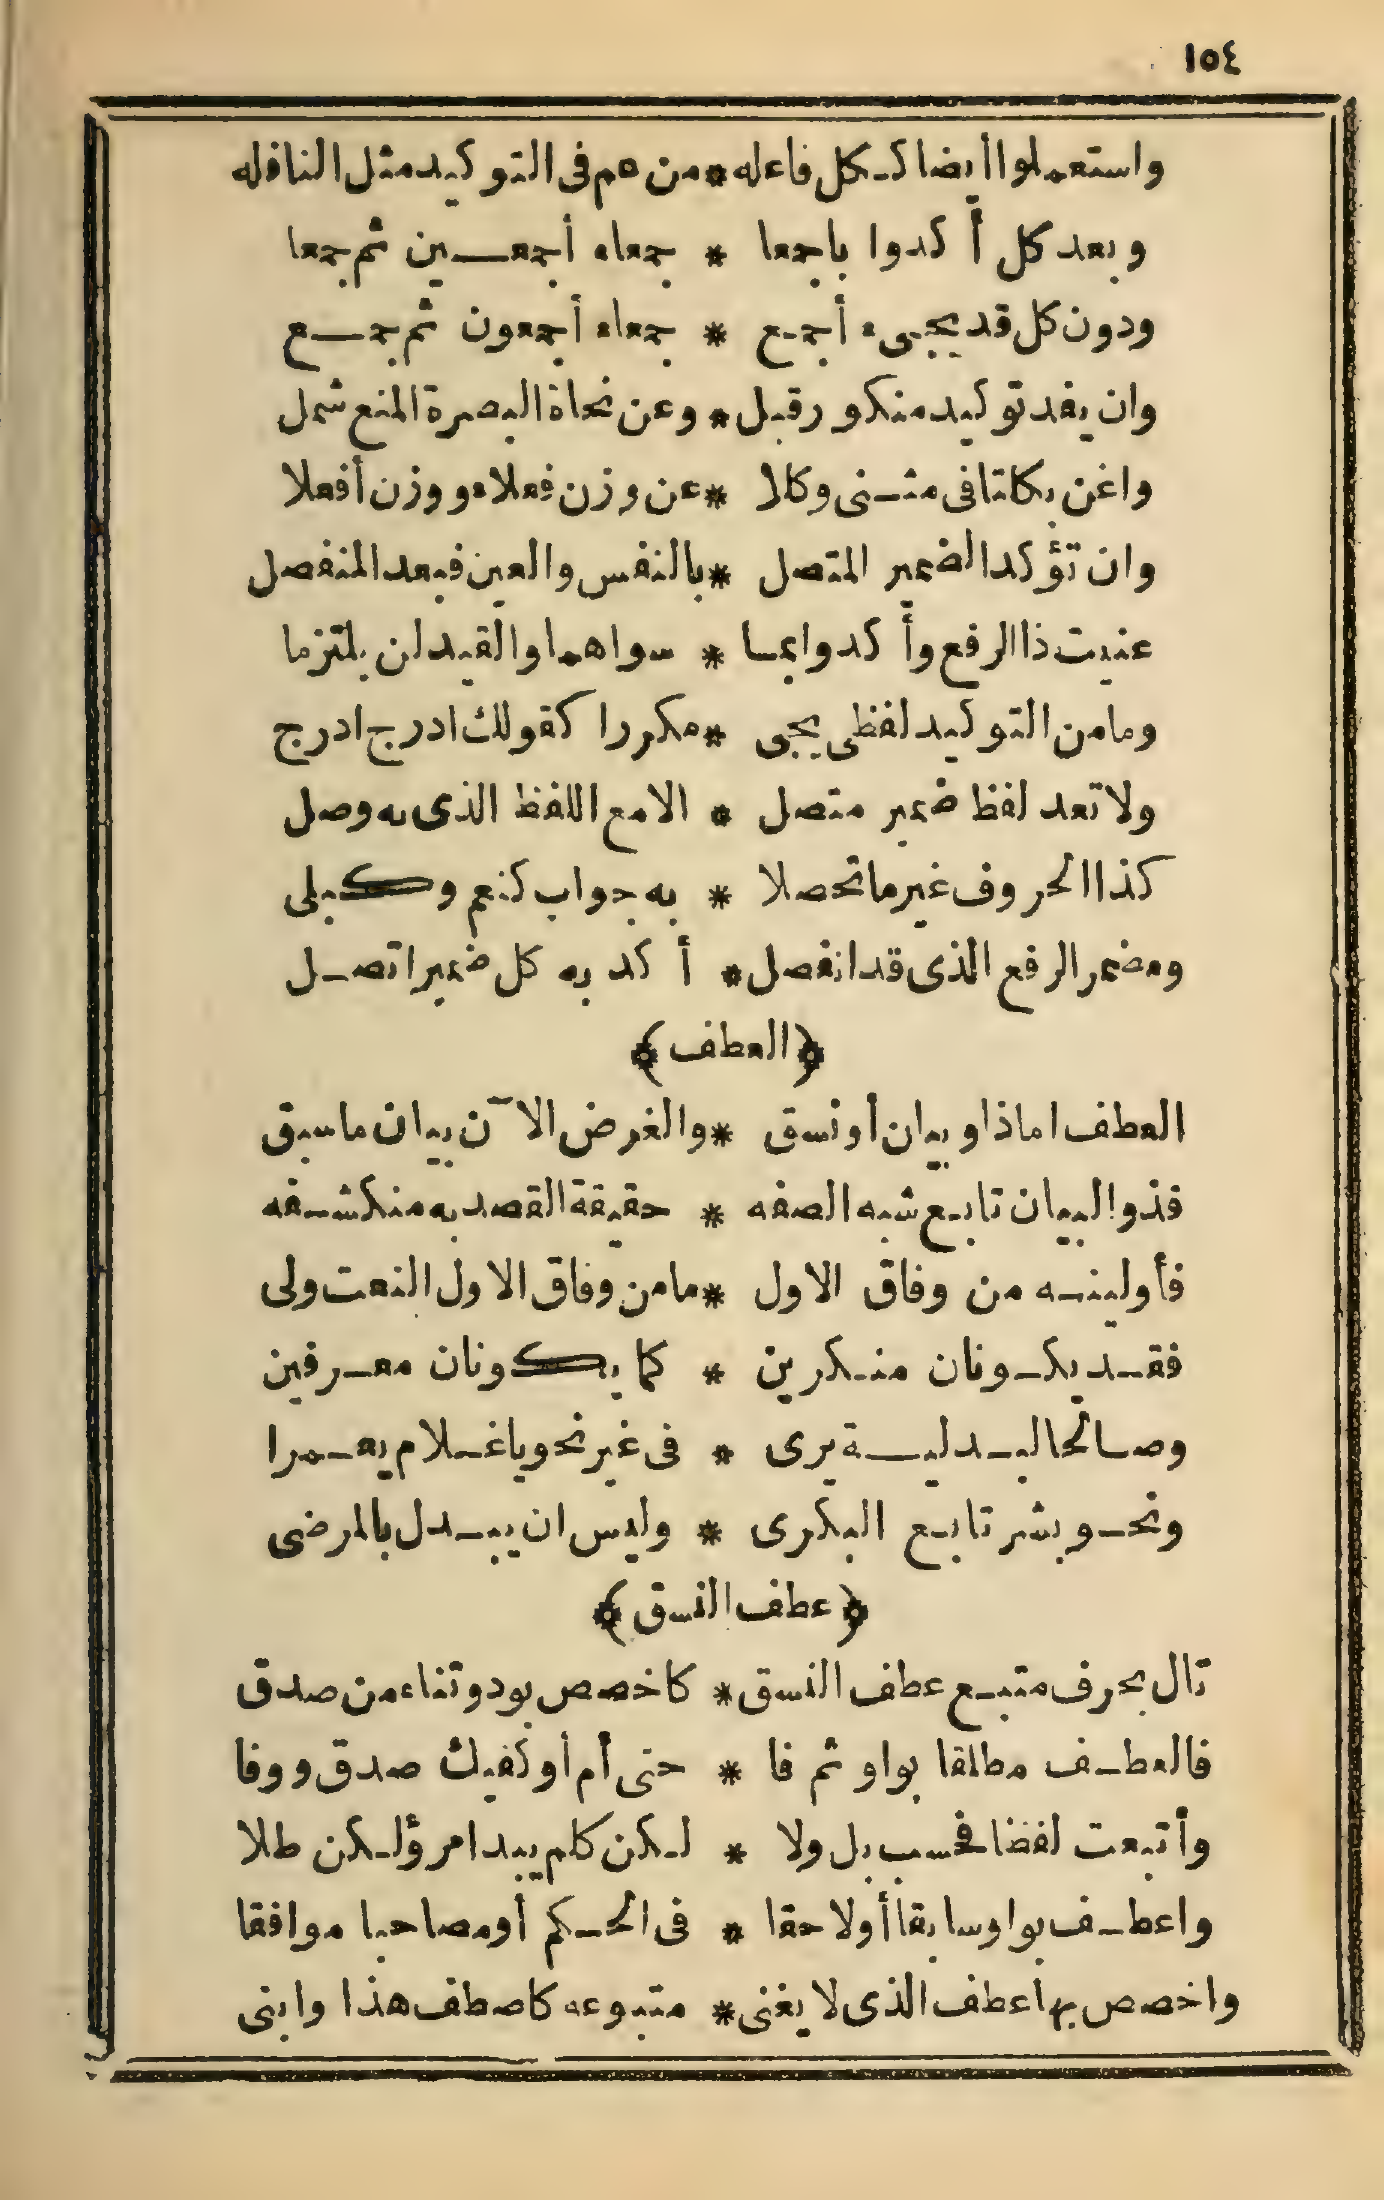 ١٥٤
واستعملوا أيضا ككل فاعله * من عم فى التوكيد مثل النافله
وبعد كل أكدوا باجمعا * جمعاء أجمعين ثم جمعا
ودون كل قد يجىء أجمع * جمعاء أجمعون ثم جمع
وان يفد توكيد منكور قبل * وعن نحاة البصرة المنع شمل
واغن بكلتا فى مثنى وكلا * عن وزن فعلاء ووزن أفعلا
وان تؤكد الضمير المتصل * بالنفس والعين فبعد المنفصل
عنيت ذا الرفع وأكدوا بما * سواهما والقيد لن يلتزما
وما من التوكيد لفظى يجى * مكررا كقولك ادرج ادرج
ولا تعد لفظ ضمير متصل * الا مع اللفظ الذى به وصل
كذا الحروف غير ما تحصلا * به جواب كنعم وكبلى
ومضمر الرفع الذى قد انفصل * أكد به كل ضمير اتصل
﴿العطف﴾
العطف اما ذو بيان أو نسق * والغرض الآن بيان ما سبق
فذو البيان تابع شبه الصفه * حقيقة القصد به منكشفه
فأولينه من وفاق الاول * ما من وفاق الاول النعت ولى
فقد يكونان منكرين * كما يكونان معرفين
وصالحا لبدلية يرى * فى غير نحو يا غلام يعمرا
ونحو بشر تابع البكرى * وليس ان يبدل بالمرضى
﴿عطف النسق﴾
تال بحرف متبع عطف النسق * كاخصص بود وثناء من صدق
فالعطف مطلقا بواو ثم فا * حتى أم أو كفيك صدق ووفا
وأتبعت لفظا فحسب بل ولا * لكن كلم يبد امرؤ لكن طلا
واعطف بواو سابقا أو لاحقا * فى الحكم أو مصاحبا موافقا
واخصص بها عطف الذى لا يغنى * متبوعه كاصطف هذا وابنى